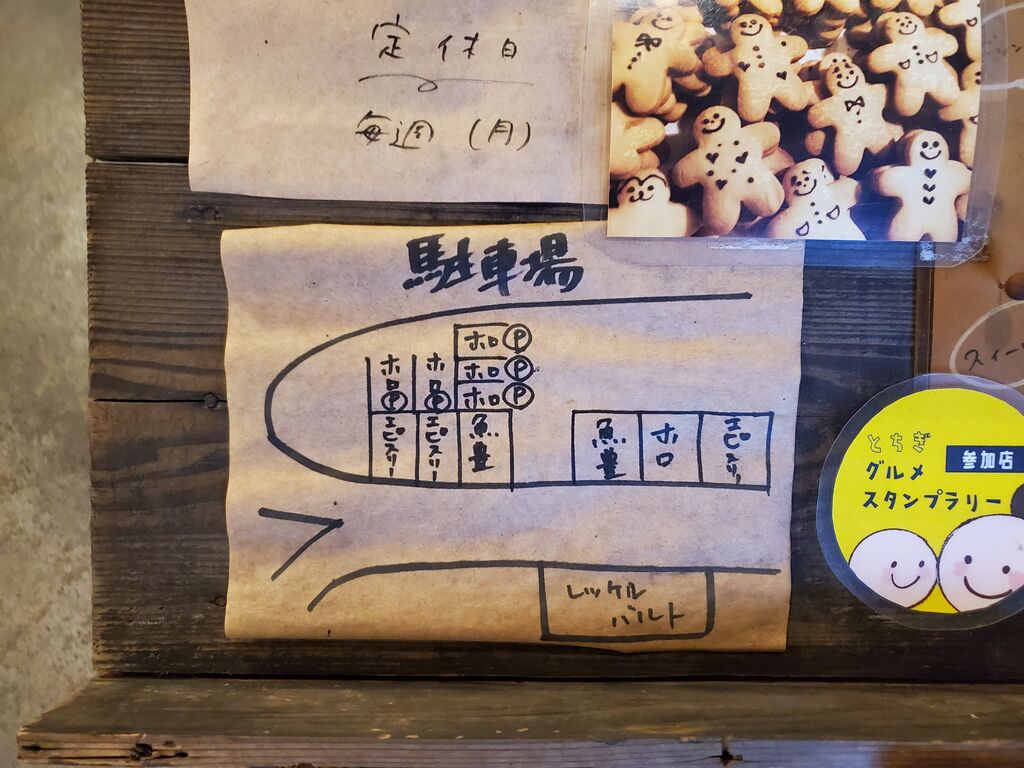 定休日
毎週 (月)
駐車場
ホロ Ⓟ
ホロ Ⓟ
ホロ Ⓟ
ホロ Ⓟ
ホロ Ⓟ
エピスリー
エピスリー
魚豊
魚豊
ホロ
エピスリー
レッケル
バルト
スイー
とちぎ
グルメ
スタンプラリー
参加店